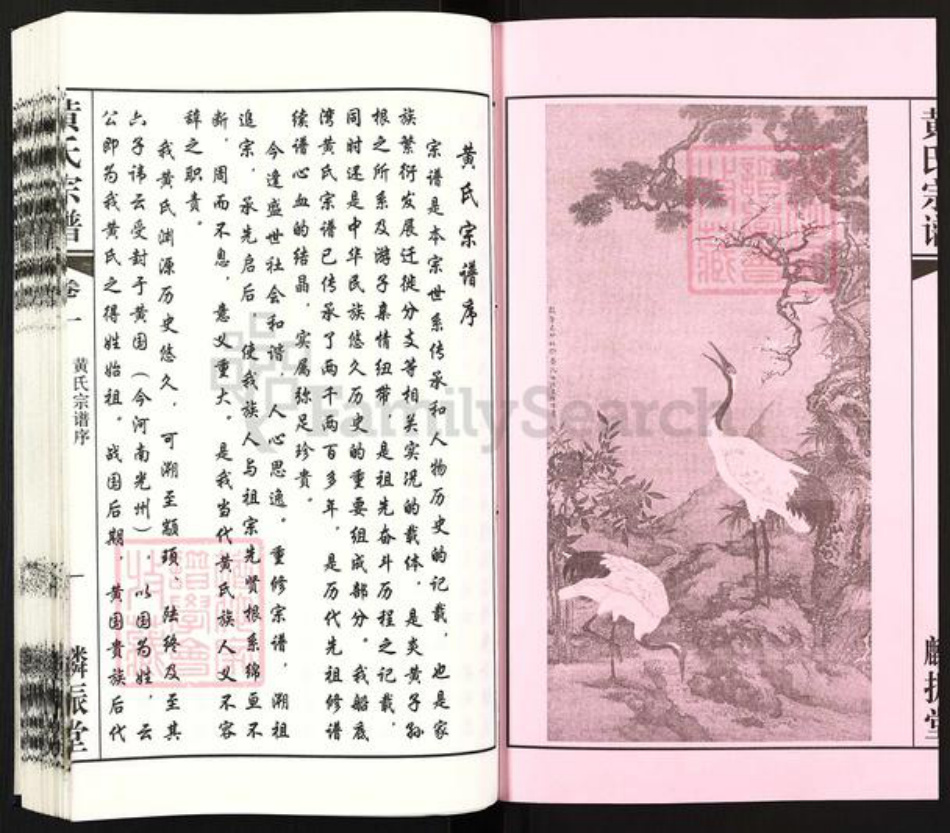 黄氏宗谱
麟振堂
黄氏宗谱序
宗谱是本宗世系传承和人物历史的记载，也是家
族繁衍发展迁徙分支等相关实况的载体，是炎黄子孙
根之所系及游子亲情纽带，是祖先奋斗历程之记载，
同时还是中华民族悠久历史的重要组成部分。我船底
湾黄氏宗谱已传承了两千两百多年，是历代先祖修谱
续谱心血的结晶，实属弥足珍贵。
今逢盛世社会和谐，人心思逸。重修宗谱，溯祖
追宗，承先启后，使我族人与祖宗先贤根系绵亘不
断，周而不息，意义重大。是我当代黄氏族人义不容
辞之职责。
我黄氏渊源历史悠久，可溯至颛顼、陆终及至其
六子讳云受封于黄国（今河南光州），以国为姓，云
公即为我黄氏之得姓始祖。战国后期，黄国贵族后代
黄氏宗谱
卷一
黄氏宗谱序
一
麟振堂
FamilySearch